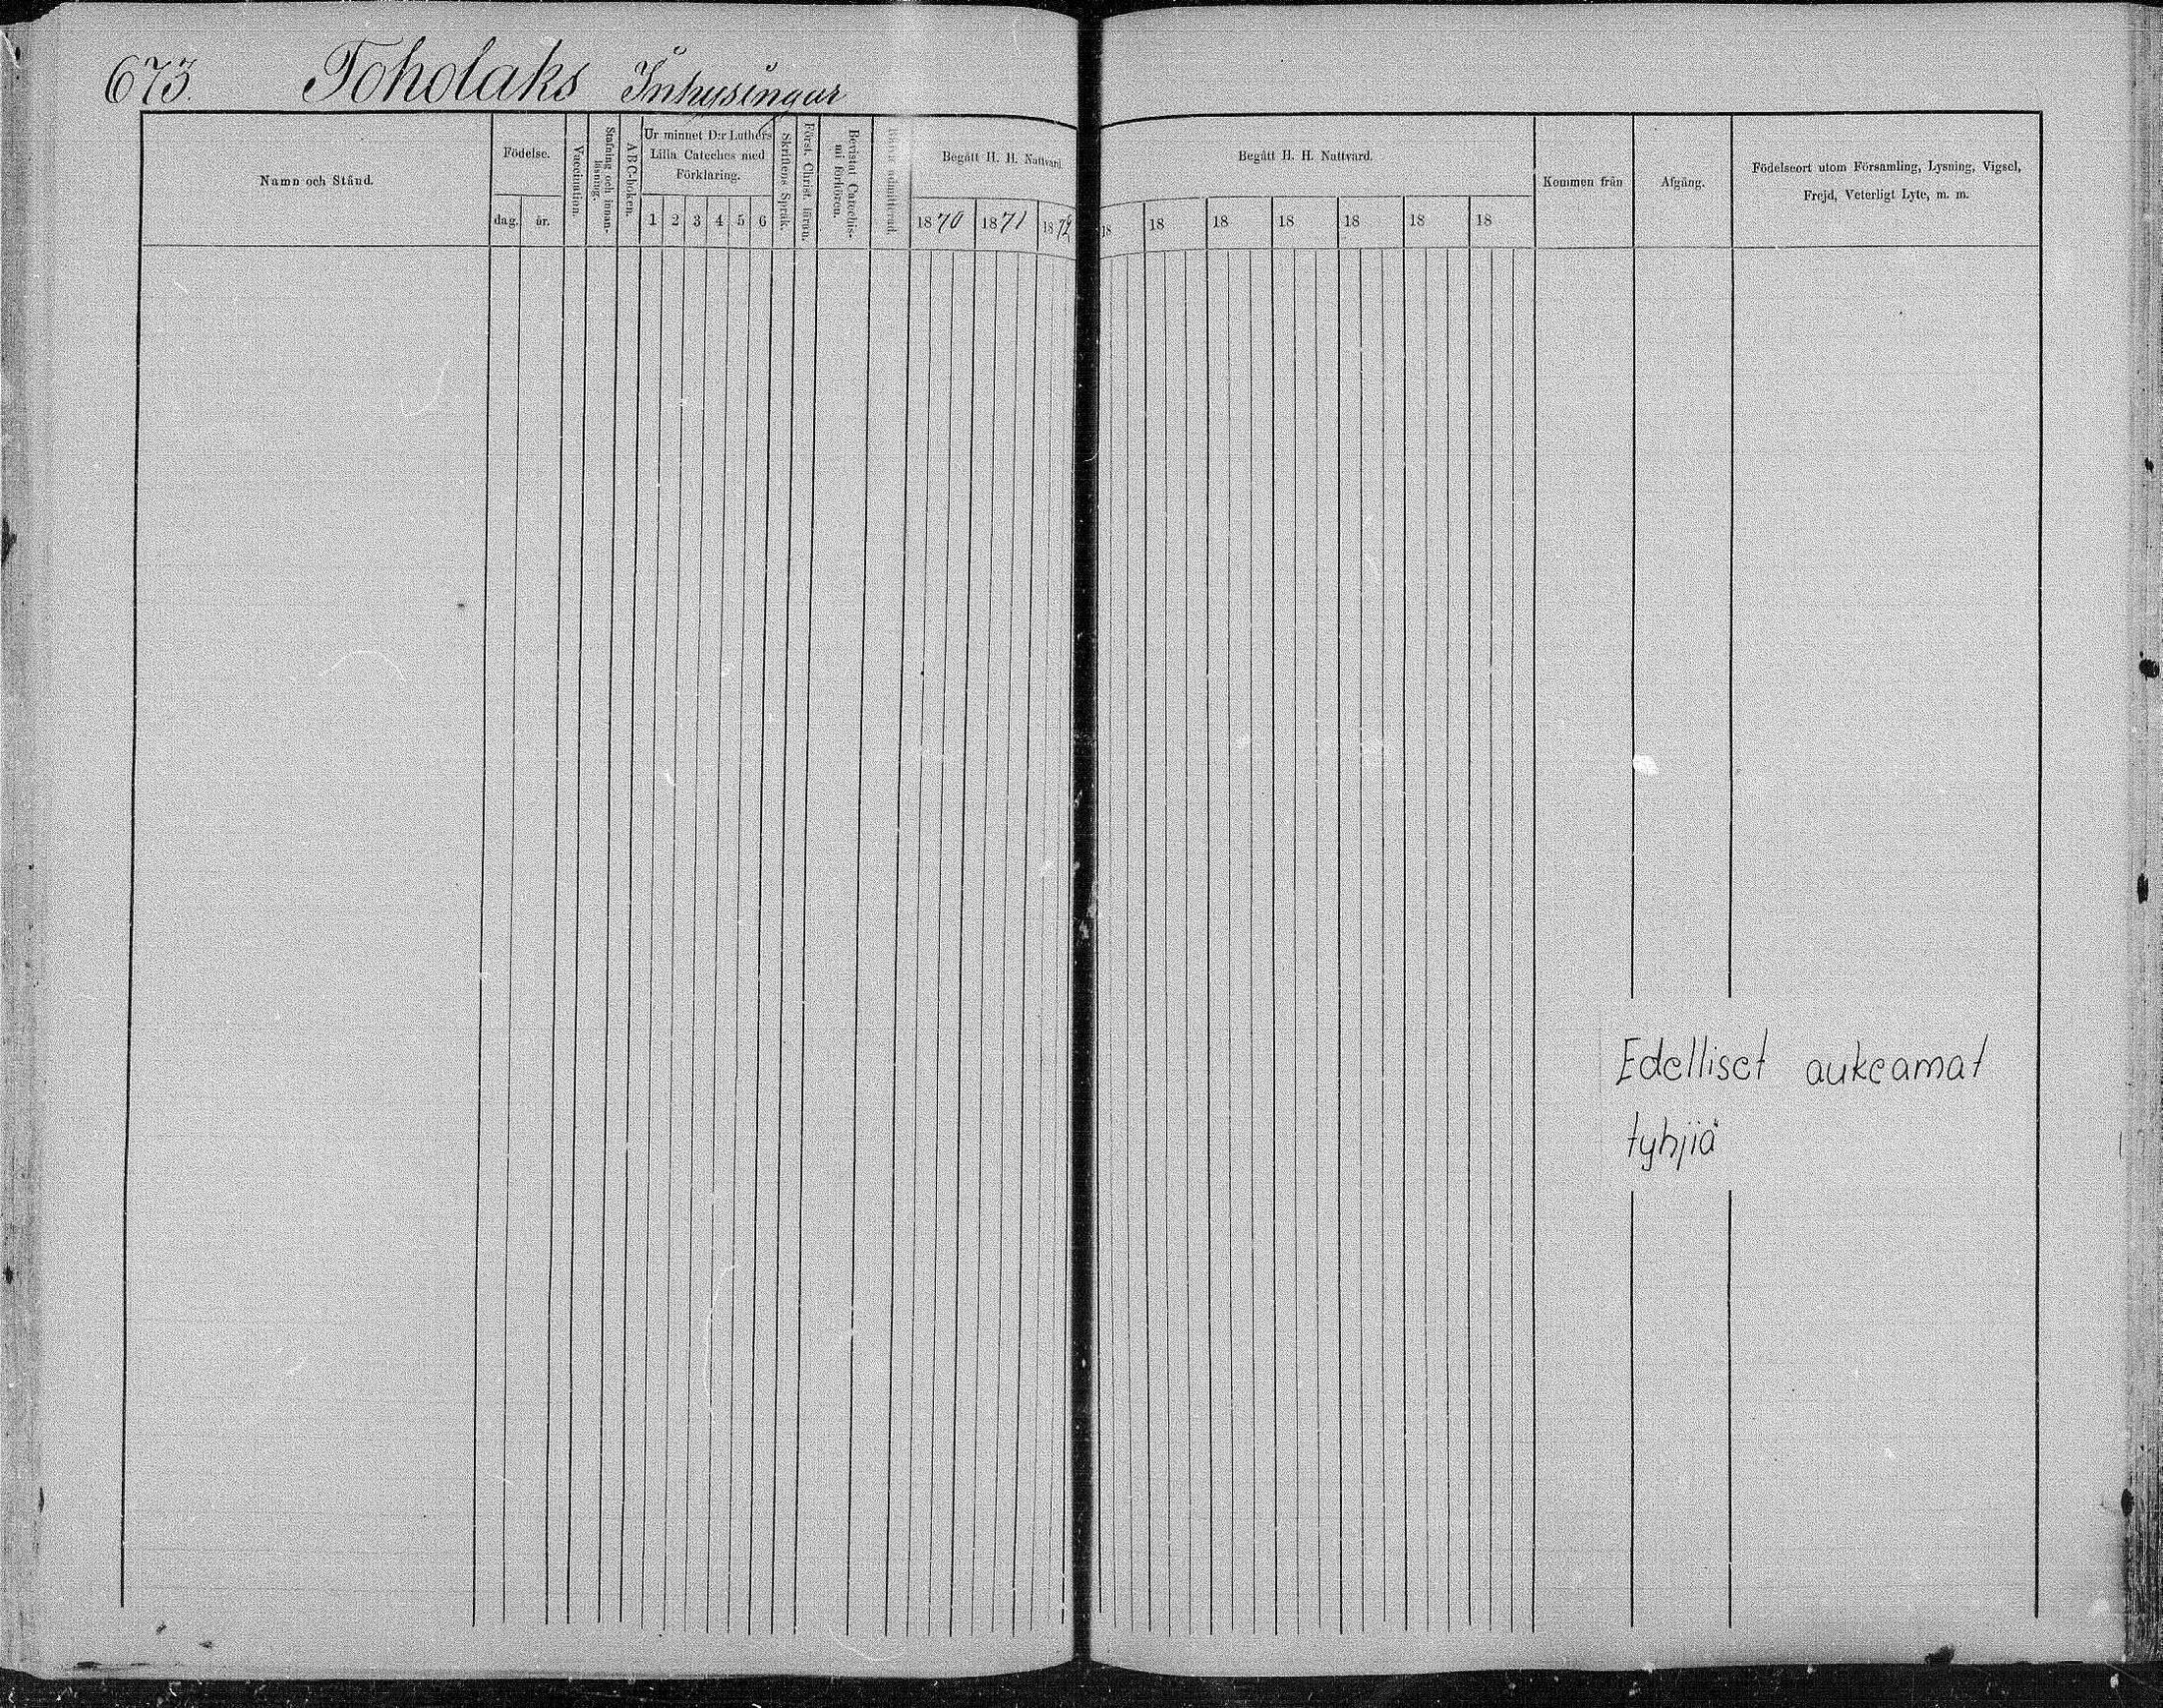 673. Toholaks Inhysingar
Namn och Stånd.
Födelse.
dag. år.
Vaccination.
Stafning och innan-
läsning.
ABC-boken.
Ur minnet D:r Luthers
Lilla Cateches med
Förklaring.
1 2 3 4 5 6
Skriftens Språk.
Först. Christ. läran.
Bevistat Catechis-
mi förhören.
admitterad.
Begått H. H. Nattvard.
1870 1871 1872
Begått H. H. Nattvard.
18 18 18 18 18 18 18
Kommen från
Afgång.
Födelseort utom Församling, Lysning, Vigsel,
Frejd, Veterligt Lyte, m. m.
Edelliset aukeamat
tyhjiä